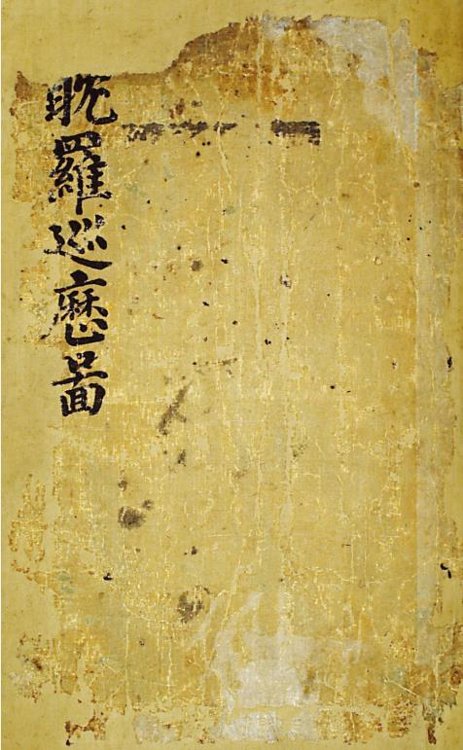 耽羅巡歷啚